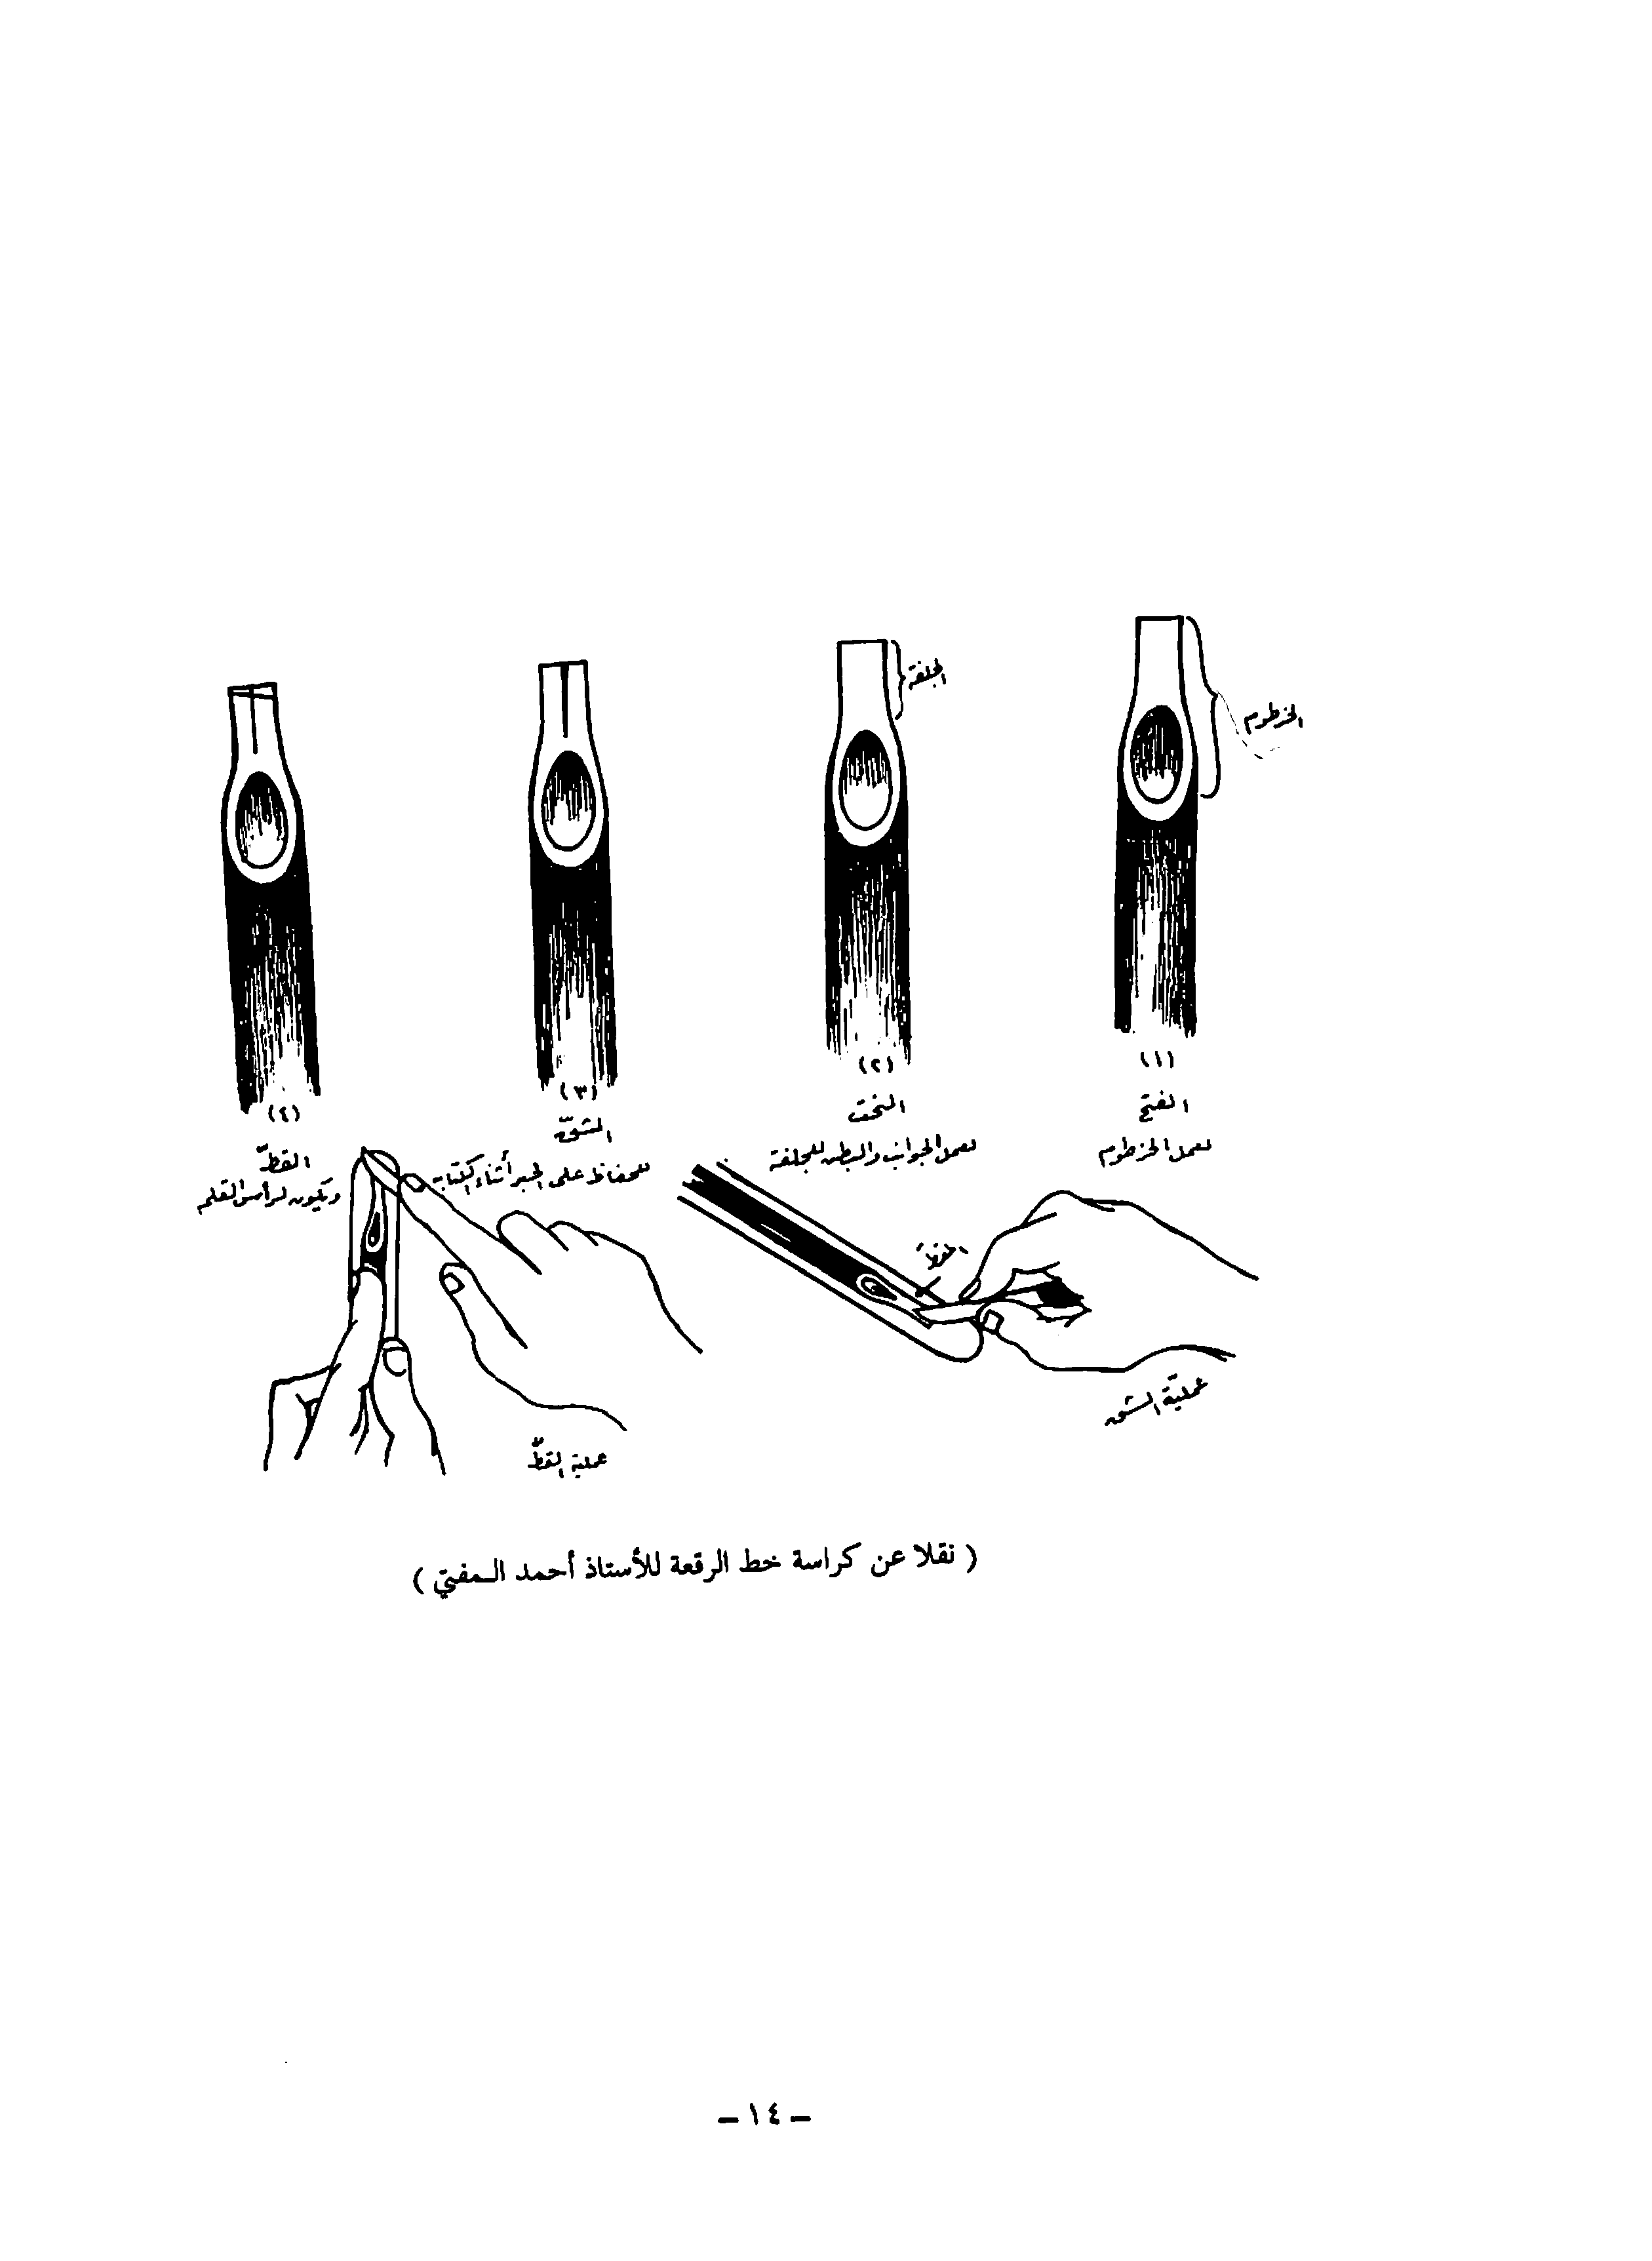 الخرطوم
الجلفة
(١)
الفتح
لعمل الخرطوم
(٢)
النحت
لعمل الجوانب والبطن للجلفة
(٣)
الشقّ
للحفاظ على الحبر أثناء الكتابة
(٤)
القطّ
ويكون لرأس القلم
المقطة
عمليّة الشق
عملية القطّ
( نقلا عن كراسة خط الرقعة للأستاذ أحمد المفتي )
– ١٤ –